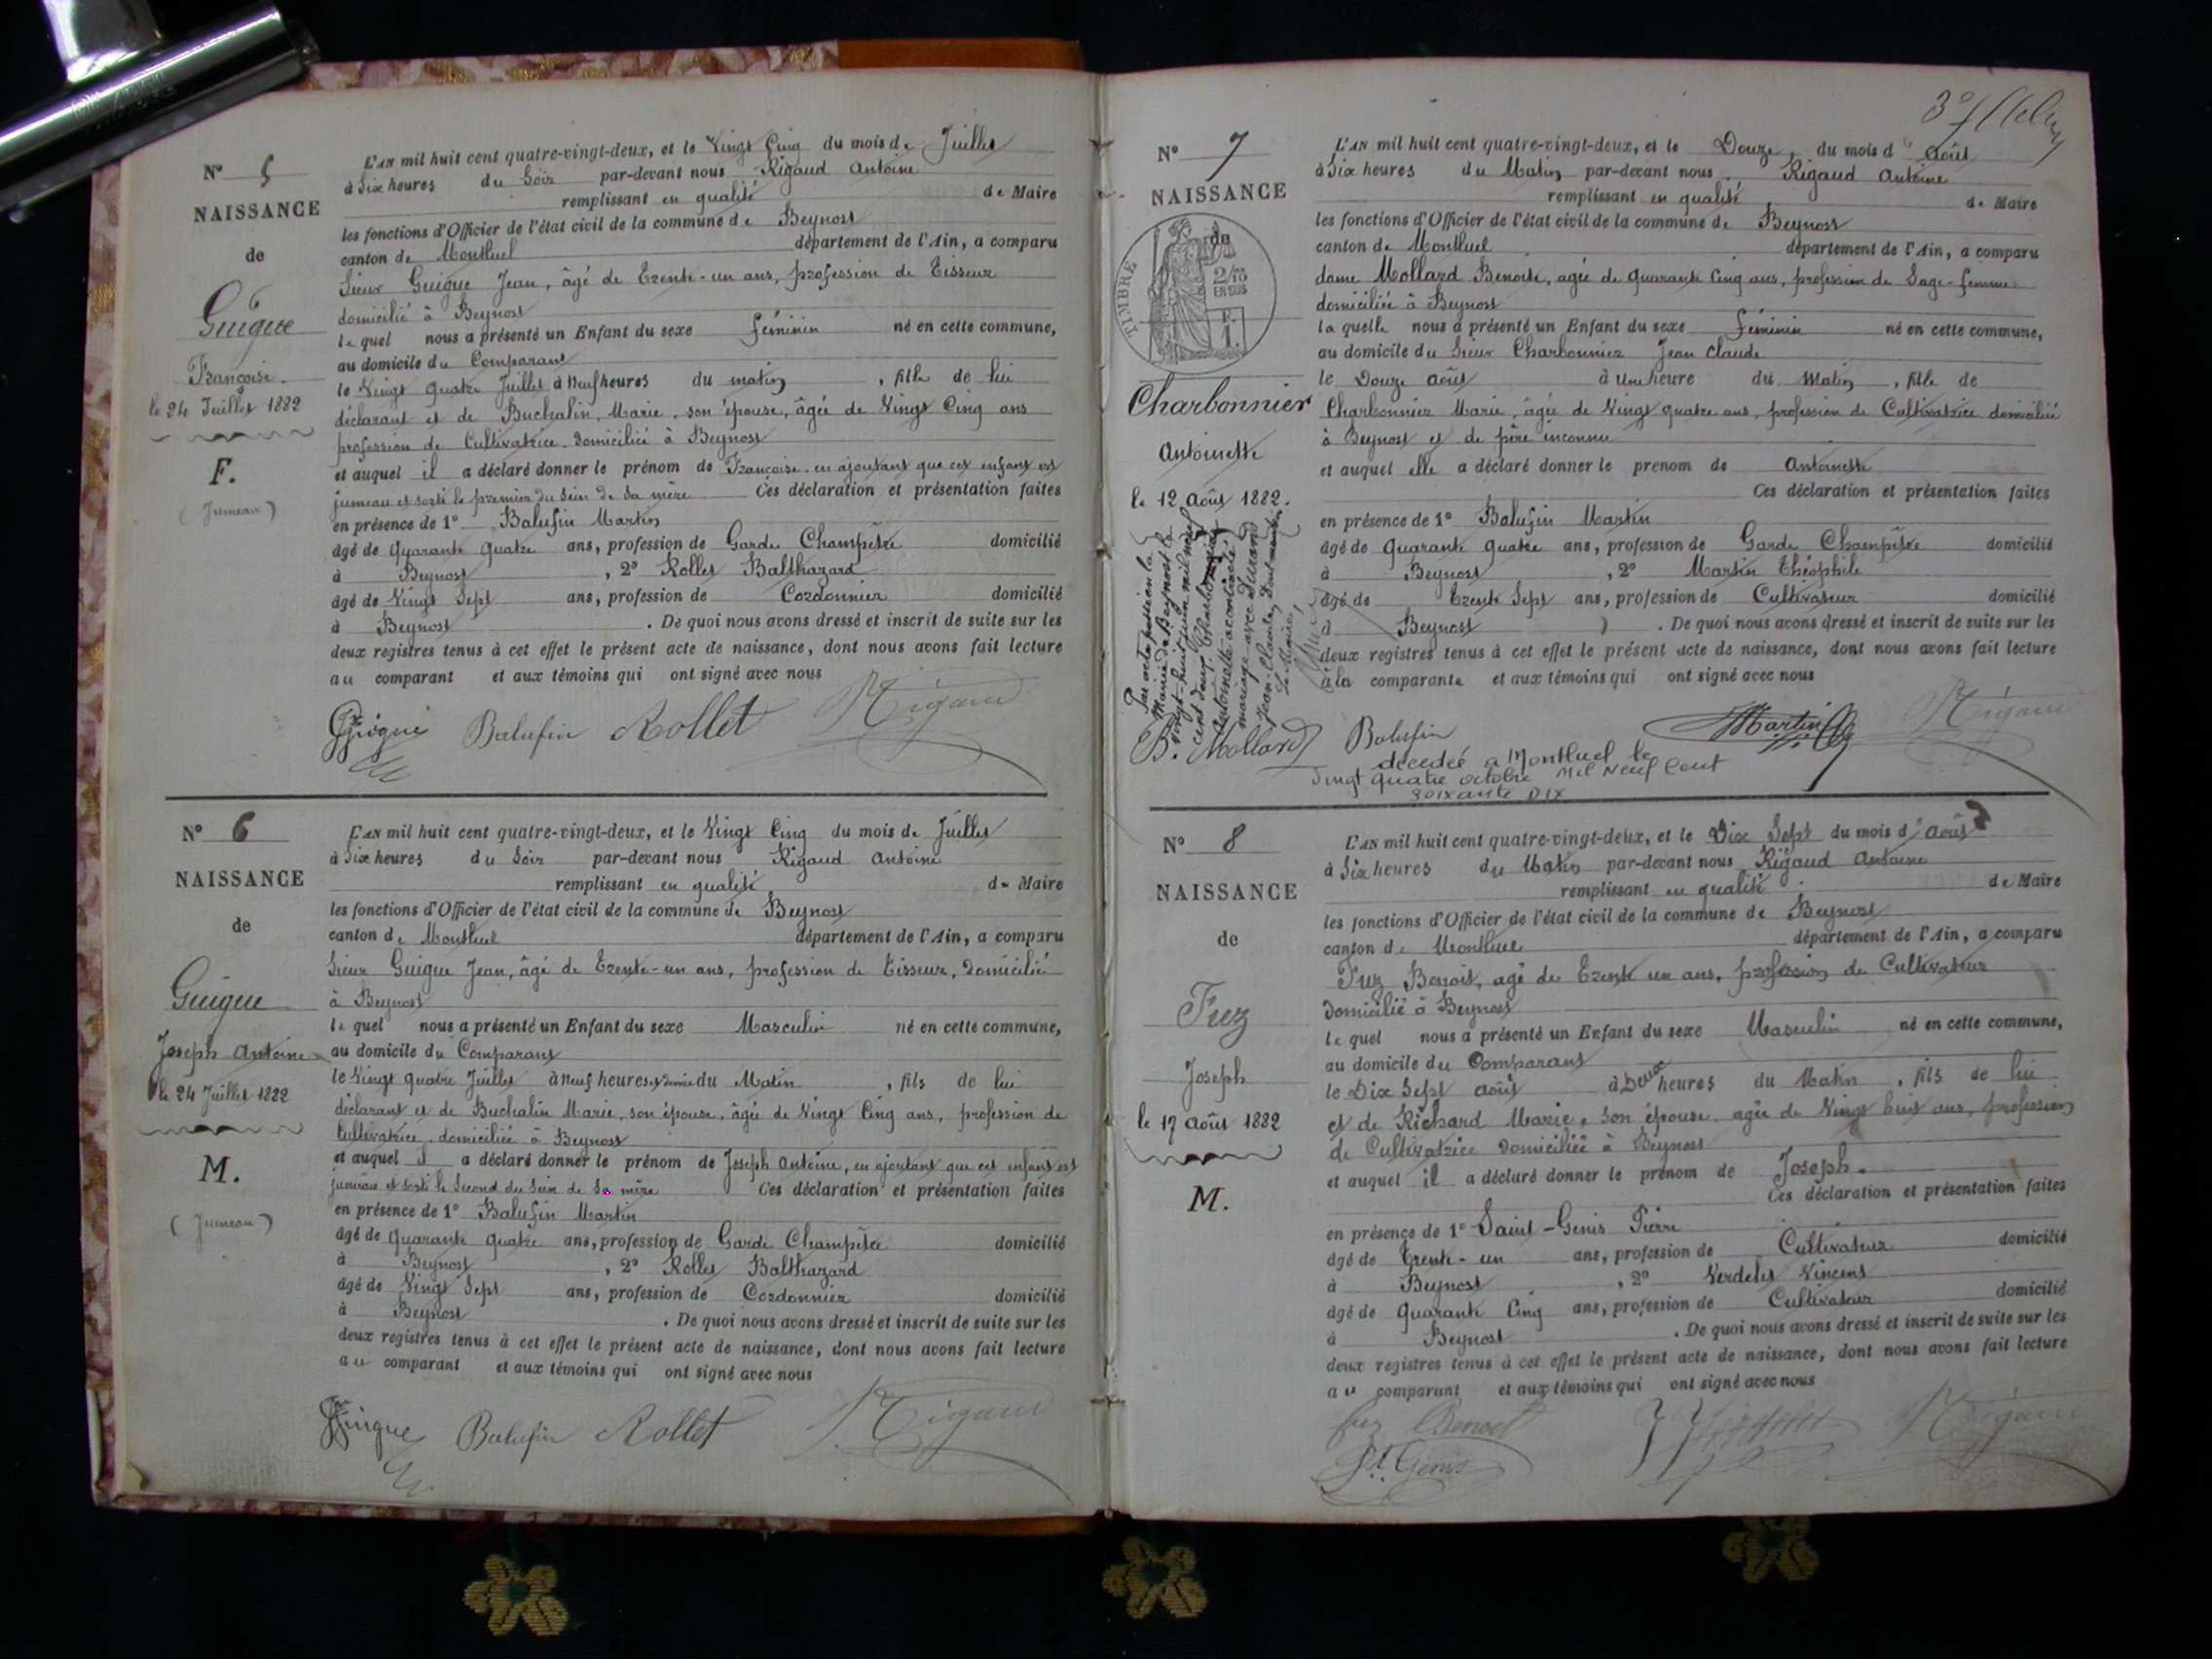 N° 5
NAISSANCE
de
Guigue
Françoise
le 24 Juillet 1882
F.
(Jumeau)
L'AN mil huit cent quatre-vingt-deux, et le Vingt Cinq du mois de Juillet
à Six heures du Soir par-devant nous Rigaud Antoine
remplissant en qualité de Maire
les fonctions d'Officier de l'état civil de la commune de Beynost
canton de Montluel département de l'Ain, a comparu
Sieur Guigue Jean, âgé de Trente-un ans, profession de Tisseur
domicilié à Beynost
lequel nous a présenté un Enfant du sexe féminin né en cette commune,
au domicile du Comparant
le Vingt quatre Juillet à Neuf heures du matin, fille de lui
déclarant et de Buchalin, Marie, son épouse, âgée de Vingt Cinq ans
profession de Cultivatrice domiciliée à Beynost
et auquel il a déclaré donner le prénom de Françoise en ajoutant que cet enfant est
jumeau et sorti le premier du sein de sa mère Ces déclaration et présentation faites
en présence de 1° Balufin Martin
âgé de Quarante quatre ans, profession de Garde Champêtre domicilié
à Beynost, 2° Rollet Balthazard
âgé de Vingt Sept ans, profession de Cordonnier domicilié
à Beynost. De quoi nous avons dressé et inscrit de suite sur les
deux registres tenus à cet effet le présent acte de naissance, dont nous avons fait lecture
au comparant et aux témoins qui ont signé avec nous
Guigue Balufin Rollet Rigaud
N° 6
NAISSANCE
de
Guigue
Joseph Antoine
le 24 Juillet 1882
M.
(Jumeau)
L'AN mil huit cent quatre-vingt-deux, et le Vingt Cinq du mois de Juillet
à Six heures du Soir par-devant nous Rigaud Antoine
remplissant en qualité de Maire
les fonctions d'Officier de l'état civil de la commune de Beynost
canton de Montluel département de l'Ain, a comparu
Sieur Guigue Jean, âgé de Trente-un ans, profession de Tisseur, domicilié
à Beynost
lequel nous a présenté un Enfant du sexe Masculin né en cette commune,
au domicile du Comparant
le Vingt quatre Juillet à Neuf heures et demie du Matin, fils de lui
déclarant et de Buchalin Marie, son épouse, âgée de Vingt Cinq ans, profession de
Cultivatrice, domiciliée à Beynost
et auquel il a déclaré donner le prénom de Joseph Antoine, en ajoutant que cet enfant est
jumeau et sorti le Second du Sein de Sa mère Ces déclaration et présentation faites
en présence de 1° Balufin Martin
âgé de Quarante quatre ans, profession de Garde Champêtre domicilié
à Beynost, 2° Rollet Balthazard
âgé de Vingt Sept ans, profession de Cordonnier domicilié
à Beynost. De quoi nous avons dressé et inscrit de suite sur les
deux registres tenus à cet effet le présent acte de naissance, dont nous avons fait lecture
au comparant et aux témoins qui ont signé avec nous
Guigue Balufin Rollet Rigaud
N° 7
NAISSANCE
de
TIMBRE
2/10
EN SUS
F.
1.
Charbonnier
Antoinette
le 12 Août 1882.
Par acte passé en la
Mairie de Beynost le
vingt-huit juin mil neuf
cent douze Charbonnier
Antoinette a contracté
mariage avec Durand
Jean-Claude, Dont mention
Le Maire,
L'AN mil huit cent quatre-vingt-deux, et le Douze du mois d'Août
à Six heures du Matin par-devant nous Rigaud Antoine
remplissant en qualité de Maire
les fonctions d'Officier de l'état civil de la commune de Beynost
canton de Montluel département de l'Ain, a comparu
dame Mollard Benoite, agée de quarante Cinq ans, profession de Sage-femme
domiciliée à Beynost
laquelle nous a présenté un Enfant du sexe féminin né en cette commune,
au domicile du Sieur Charbonnier Jean Claude
le Douze Août à Une heure du Matin, fille de
Charbonnier Marie, âgée de Vingt quatre ans, profession de Cultivatrice domiciliée
à Beynost et de père inconnu
et auquel elle a déclaré donner le prenom de Antoinette
Ces déclaration et présentation faites
en présence de 1° Balufin Martin
âgé de Quarante quatre ans, profession de Garde Champêtre domicilié
à Beynost, 2° Martin Théophile
âgé de Trente Sept ans, profession de Cultivateur domicilié
à Beynost. De quoi nous avons dressé et inscrit de suite sur les
deux registres tenus à cet effet le présent acte de naissance, dont nous avons fait lecture
à la comparante et aux témoins qui ont signé avec nous
B. Mollard Balufin Martin Rigaud
decedée a Montluel le
vingt quatre octobre Mil Neuf Cent
soixante Dix
N° 8
NAISSANCE
de
Fuz
Joseph
le 17 Août 1882
M.
L'AN mil huit cent quatre-vingt-deux, et le Dix Sept du mois d'Août
à Six heures du Matin par-devant nous Rigaud Antoine
remplissant en qualité de Maire
les fonctions d'Officier de l'état civil de la commune de Beynost
canton de Montluel département de l'Ain, a comparu
Fuz Benoit, agé de Trente un ans, profession de Cultivateur
domicilié à Beynost
lequel nous a présenté un Enfant du sexe Masculin né en cette commune,
au domicile du Comparant
le Dix Sept Août à Deux heures du Matin, fils de lui
et de Richard Marie, Son épouse, agée de Vingt huit ans, profession
de Cultivatrice domiciliée à Beynost
et auquel il a déclaré donner le prénom de Joseph.
Ces déclaration et présentation faites
en présence de 1° Saint-Genis Pierre
âgé de Trente-un ans, profession de Cultivateur domicilié
à Beynost, 2° Verdelet Vincent
âgé de Quarante Cinq ans, profession de Cultivateur domicilié
à Beynost. De quoi nous avons dressé et inscrit de suite sur les
deux registres tenus à cet effet le présent acte de naissance, dont nous avons fait lecture
au comparant et aux témoins qui ont signé avec nous
fuz Benoit Rigaud
St Genis